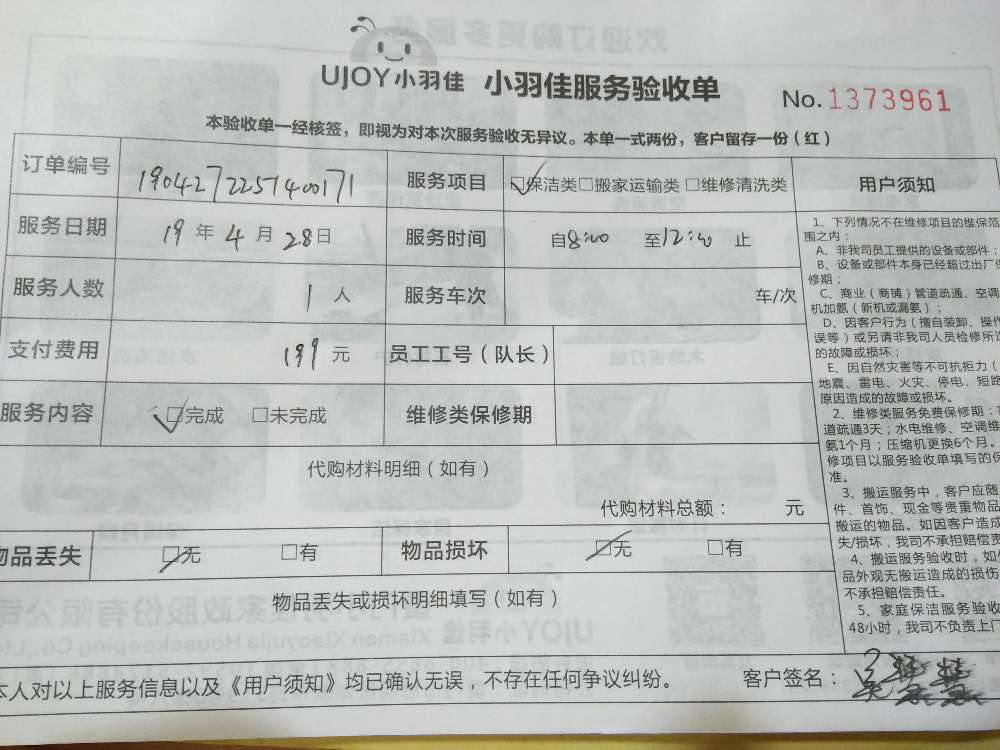 UJOY小羽佳 小羽佳服务验收单 No.1373961
本验收单一经核签，即视为对本次服务验收无异议。本单一式两份，客户留存一份（红）
订单编号 1904272251400171 服务项目 ☑保洁类□搬家运输类□维修清洗类 用户须知
服务日期 19年4月28日 服务时间 自8:00 至12:00 止
服务人数 1人 服务车次 车/次
支付费用 199元 员工工号（队长）
服务内容 ☑完成 □未完成 维修类保修期
代购材料明细（如有）
代购材料总额： 元
物品丢失 ☑无 □有 物品损坏 ☑无 □有
物品丢失或损坏明细填写（如有）
本人对以上服务信息以及《用户须知》均已确认无误，不存在任何争议纠纷。 客户签名：
1、下列情况不在维修项目的维保范
围之内：
A、非我司员工提供的设备或部件；
B、设备或部件本身已经超过出厂保
修期；
C、商业（商铺）管道疏通、空调
机加氨（新机或漏氨）；
D、因客户行为（擅自装卸、操作
误等）或另请非我司人员检修所造
的故障或损坏；
E、因自然灾害等不可抗拒力（
地震、雷电、火灾、停电、短路
原因造成的故障或损坏。
2、维修类服务免费保修期：
道疏通3天；水电维修、空调维
氨1个月；压缩机更换6个月。
修项目以服务验收单填写的保
准。
3、搬运服务中，客户应随
件、首饰、现金等贵重物品
搬运的物品。如因客户造成
失/损坏，我司不承担赔偿责
4、搬运服务验收时，如
品外观无搬运造成的损伤
不承担赔偿责任。
5、家庭保洁服务验收
48小时，我司不负责上门